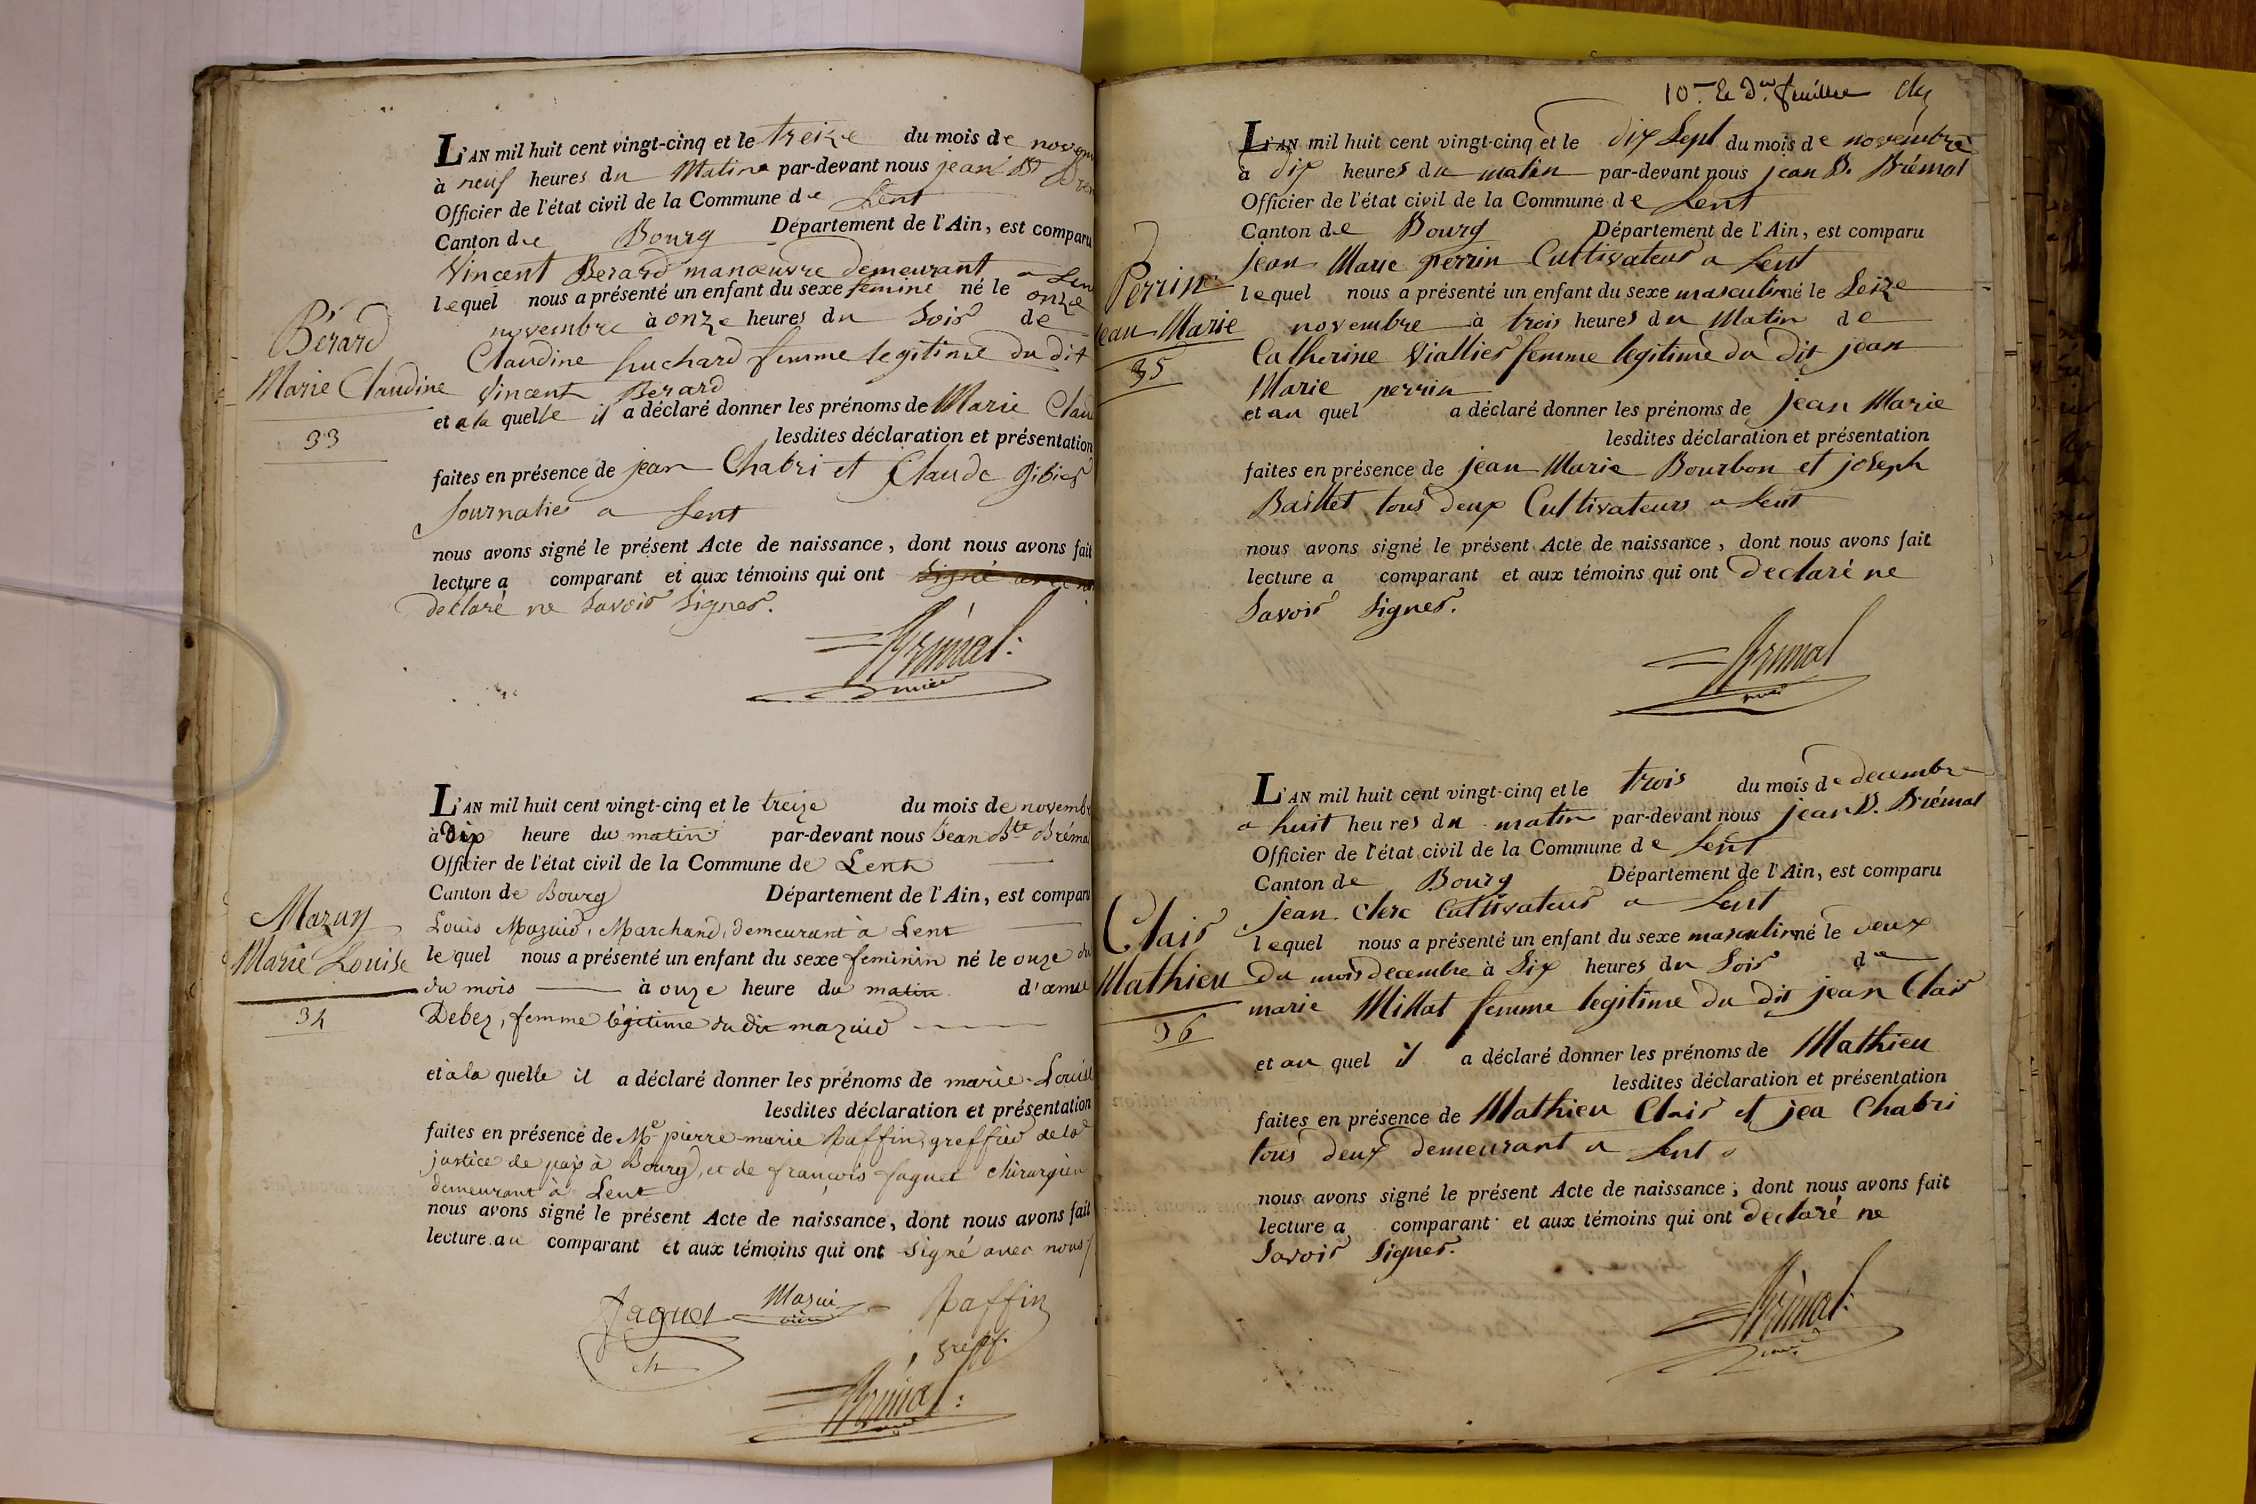 L'AN mil huit cent vingt-cinq et le treize du mois de novem
à neuf heures du Matin par-devant nous jean Bt
Officier de l'état civil de la Commune de Lent
Canton de Bourg Département de l'Ain, est comparu
Vincent Berard manœuvre demeurant a Len
lequel nous a présenté un enfant du sexe feminé né le onze
novembre à onze heures du Soir de
Claudine huchard femme legitime du dit
Vincent Berard
et a la quelle il a déclaré donner les prénoms de Marie Clau
lesdites déclaration et présentation
faites en présence de jean Chabri et Claude Gibier
Journalier a Lent
nous avons signé le présent Acte de naissance, dont nous avons fait
lecture a comparant et aux témoins qui ont signé avec nou
declaré ne Savoir Signer.
Brémal
maire
Bérard
Marie Claudine
33
L'AN mil huit cent vingt-cinq et le treize du mois de novemb
à Dix heure du matin par-devant nous Jean Bte Bréma
Officier de l'état civil de la Commune de Lent
Canton de Bourg Département de l'Ain, est comparu
Louis Mazuid, Marchand, demeurant à Lent
le quel nous a présenté un enfant du sexe feminin né le onze du
du mois à onze heure du matin d'aimée
Debez, femme légitime du dit mazuid
et à la quelle il a déclaré donner les prénoms de marie-Louise
lesdites déclaration et présentation
faites en présence de Me pierre-marie Raffin, greffier de la
justice de paix à Bourg, et de françois faguet chirurgien
demeurant à Lent
nous avons signé le présent Acte de naissance, dont nous avons fait
lecture au comparant et aux témoins qui ont signé avec nous
faguet Mazui Raffin
ch greff.
Brémal
Mazuy
Marie Louise
34
10me & Der feuillet
L'AN mil huit cent vingt-cinq et le dix Sept du mois de novembre
à dix heures du matin par-devant nous jean B. Brémal
Officier de l'état civil de la Commune de Lent
Canton de Bourg Département de l'Ain, est comparu
jean Marie perrin Cultivateur a Lent
lequel nous a présenté un enfant du sexe masculin né le Seize
novembre à trois heures du Matin de
Catherine Viallier femme legitime du dit jean
Marie perrin
et au quel a déclaré donner les prénoms de jean Marie
lesdites déclaration et présentation
faites en présence de jean Marie Bourbon et joseph
Baillet tous deux Cultivateurs a Lent
nous avons signé le présent Acte de naissance, dont nous avons fait
lecture a comparant et aux témoins qui ont declaré ne
Savoir Signer.
Brémal
maire
Perrin
jean Marie
35
L'AN mil huit cent vingt-cinq et le trois du mois de decembre
a huit heures du matin par-devant nous jean B. Brémal
Officier de l'état civil de la Commune de Lent
Canton de Bourg Département de l'Ain, est comparu
jean clerc Cultivateur a Lent
lequel nous a présenté un enfant du sexe masculin né le deux
du mois decembre à Six heures du Soir de
marie Millat femme legitime du dit jean Clair
et au quel il a déclaré donner les prénoms de Mathieu
lesdites déclaration et présentation
faites en présence de Mathieu Clair et jea Chabri
tous deux demeurant a Lent
nous avons signé le présent Acte de naissance, dont nous avons fait
lecture a comparant et aux témoins qui ont declaré ne
Savoir Signer.
Brémal
maire
Clair
Mathieu
36